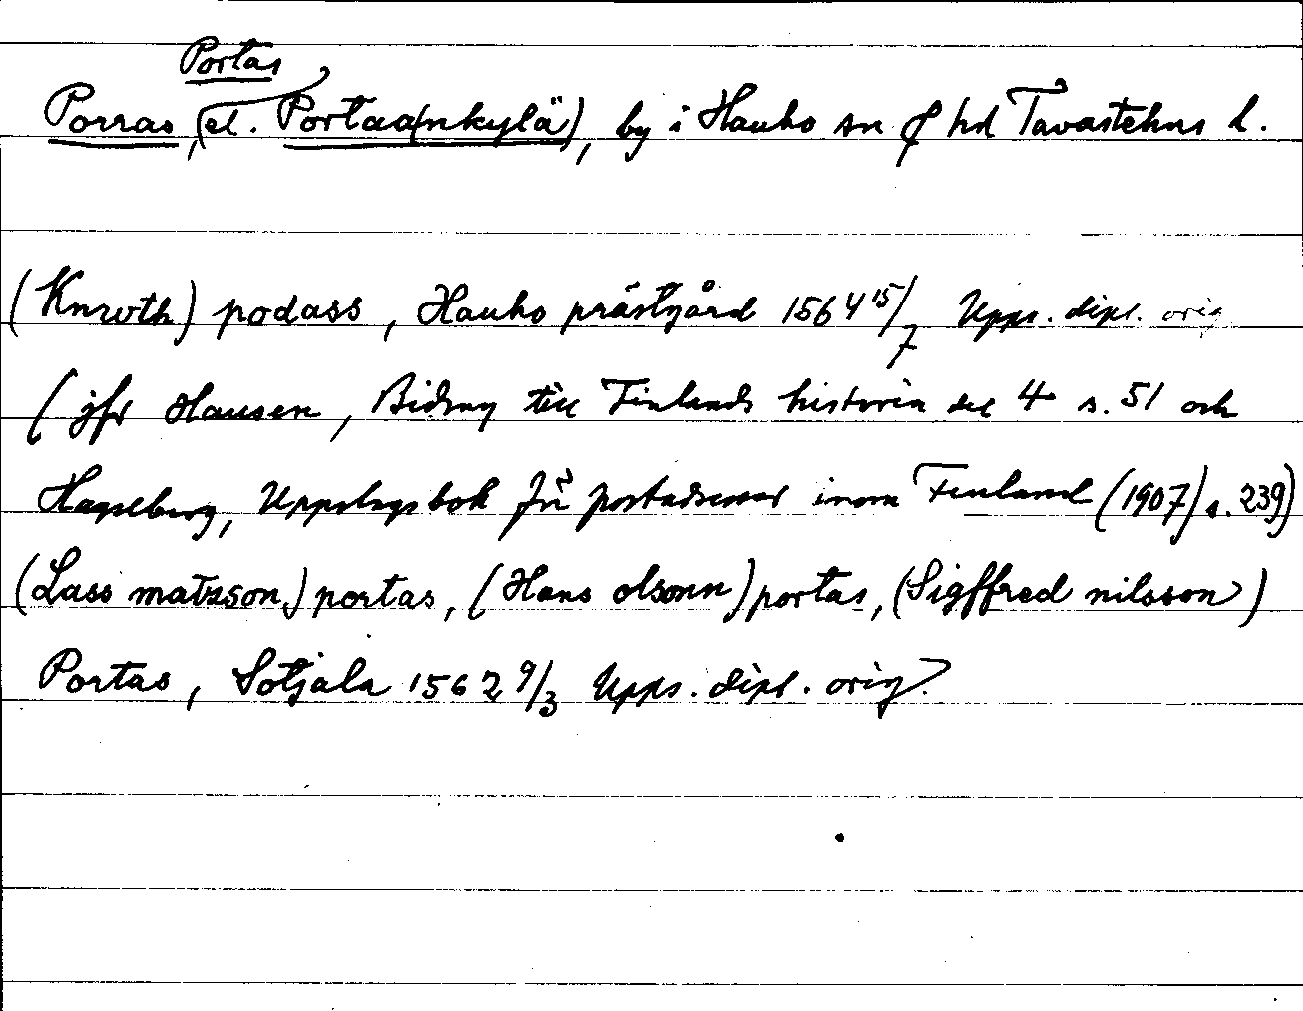 Portas
Porras, (el. Portaa(nkylä), by i Hauho sn o hd Tavastehus l.
(Knwth) podass, Hauho prästgård 1564 15/7 Upps. dipl. orig
(jfr Hausen, Bidrag till Finlands historia del 4 s. 51 och
Hagelberg, Uppslagsbok för postadresser inom Finland (1907) s. 239)
(Lass matzson) portas, (Hans olsonn) portas, (Sigffred nilsson)
Portas, Sotjala 1562 9/3 Upps. dipl. orig.